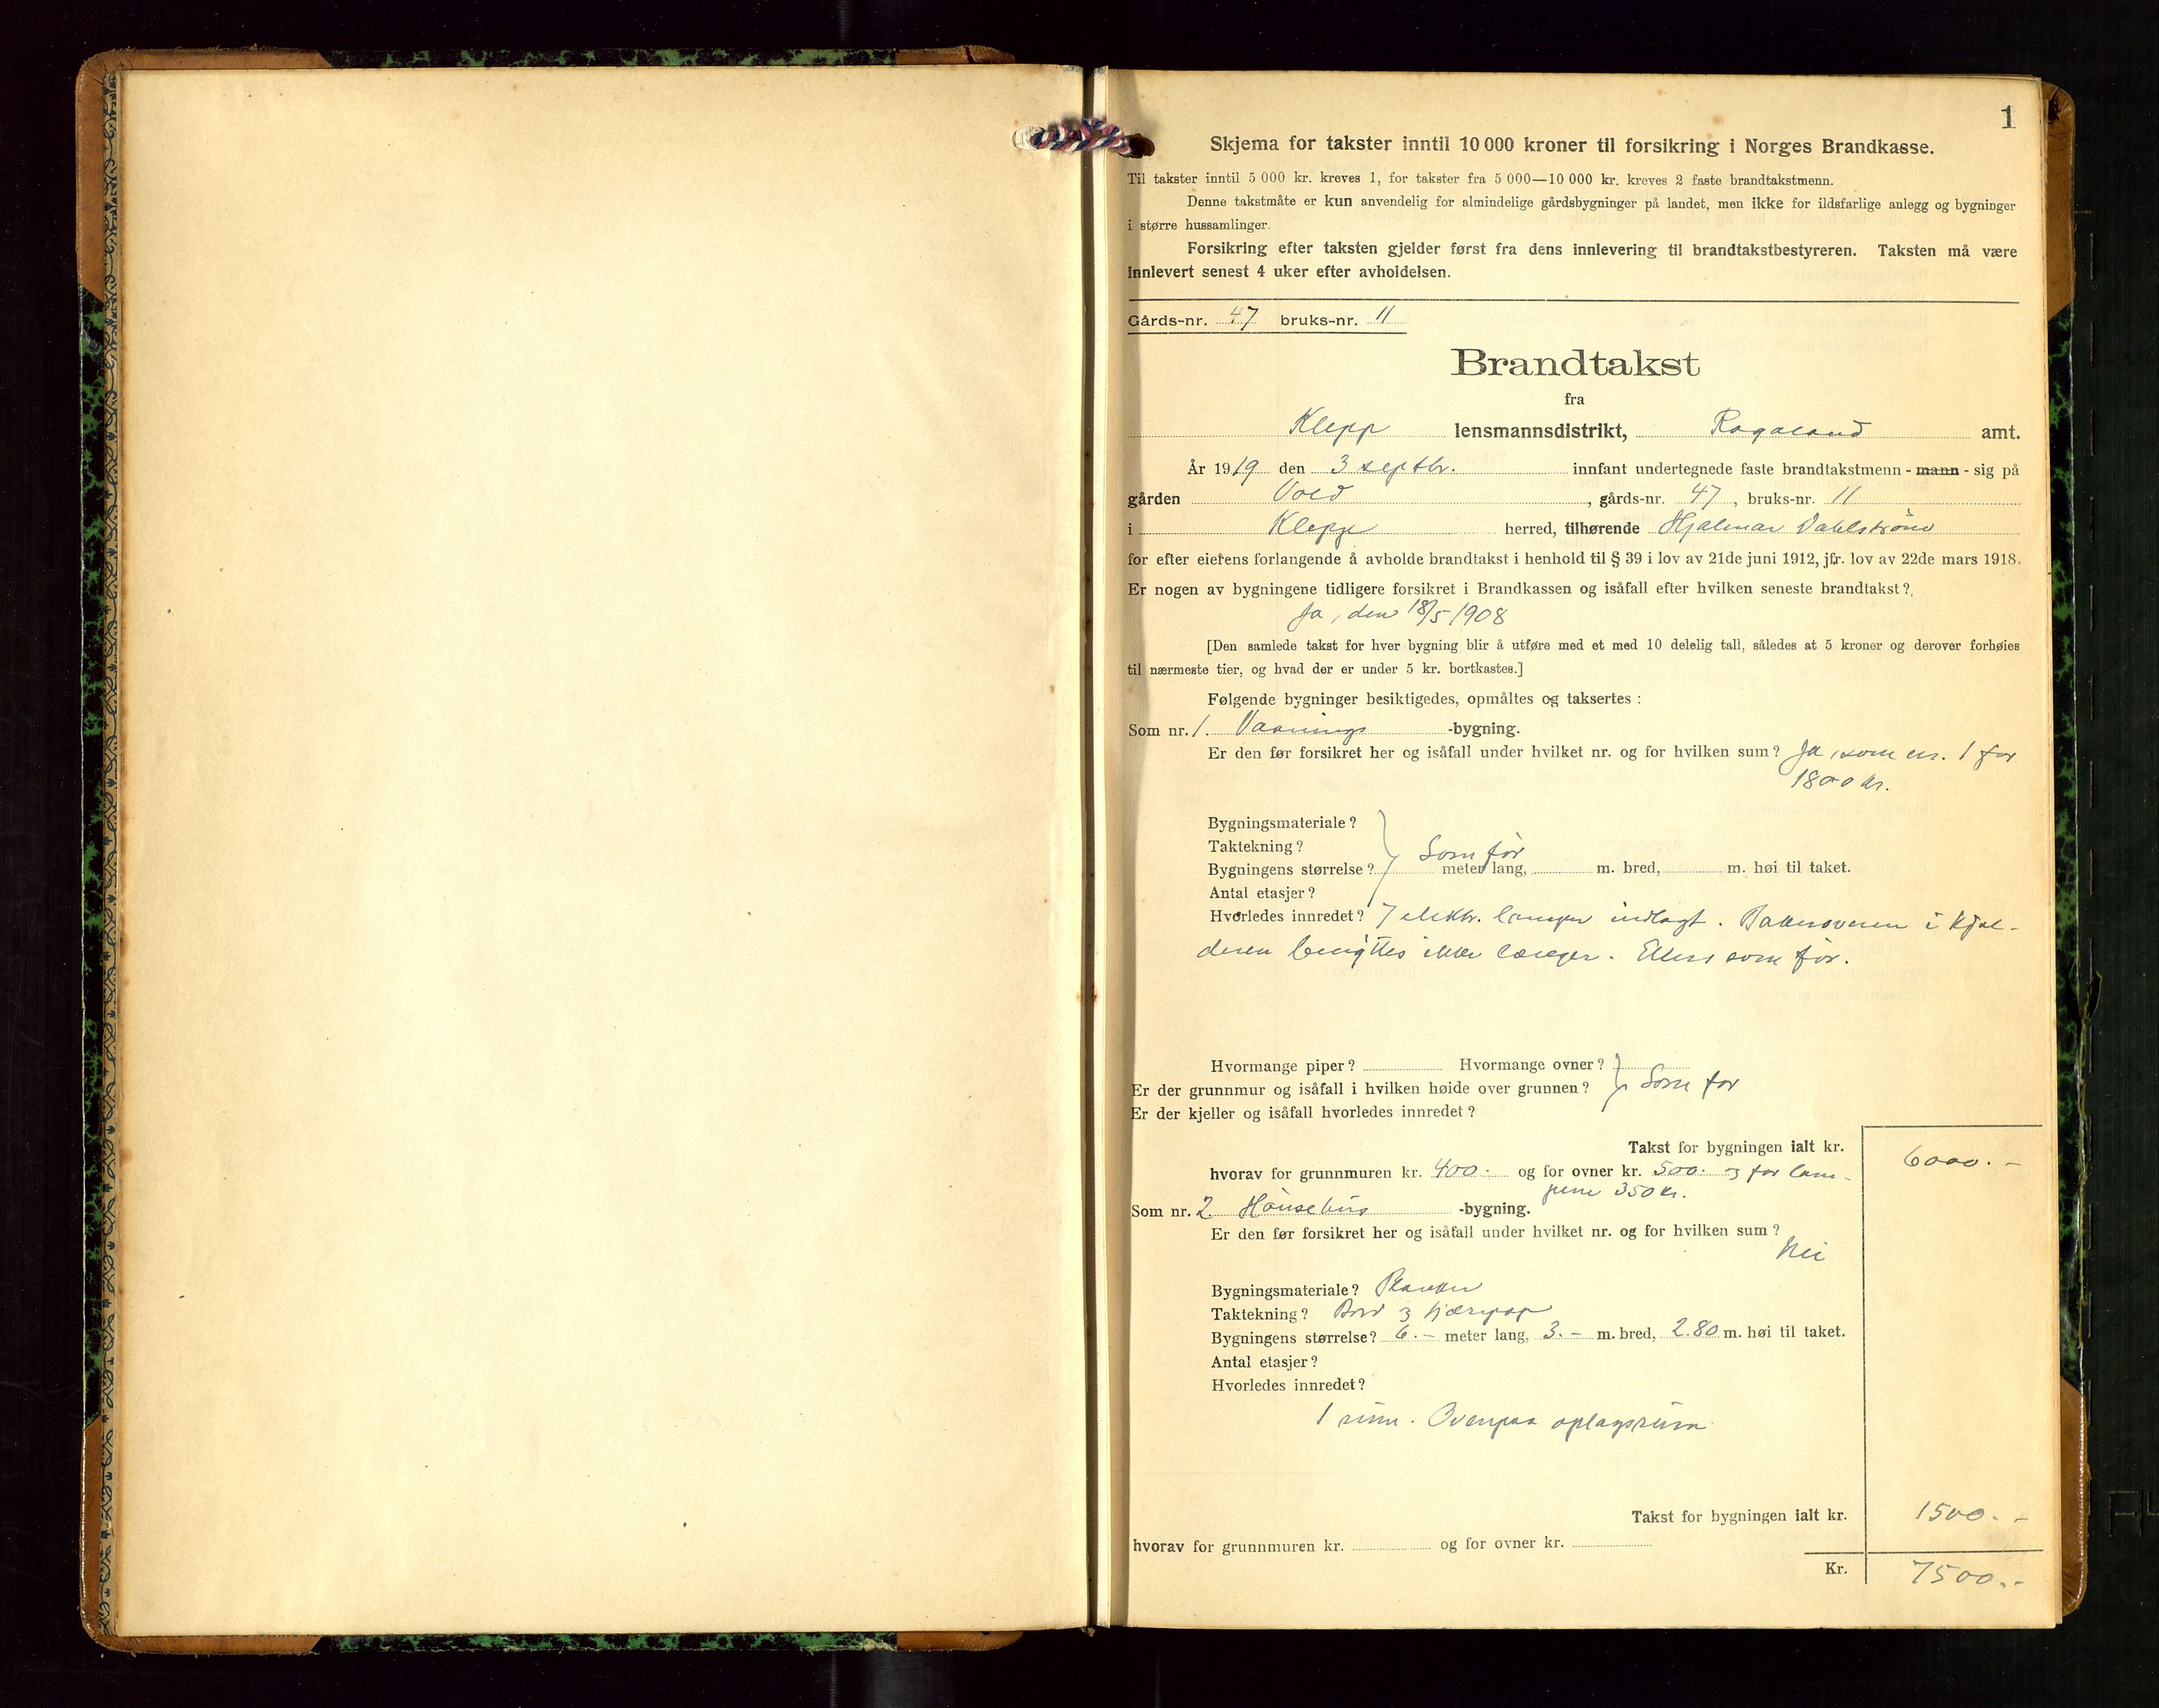 1
Skjema for takster inntil 10 000 kroner til forsikring i Norges Brandkasse.
Til takster inntil 5 000 kr. kreves 1, for takster fra 5 000—10 000 kr. kreves 2 faste brandtakstmenn.
Denne takstmåte er kun anvendelig for almindelige gårdsbygninger på landet, men ikke for ildsfarlige anlegg og bygninger
i større hussamlinger.
Forsikring efter taksten gjelder først fra dens innlevering til brandtakstbestyreren. Taksten må være
innlevert senest 4 uker efter avholdelsen.
Gårds-nr. 47 bruks-nr. 11
Brandtakst
fra
Klepp lensmannsdistrikt, Rogaland amt.
År 1919 den 3 septbr. innfant undertegnede faste brandtakstmenn - mann - sig på
gården Vold, gårds-nr. 47, bruks-nr. 11
i Klepp herred, tilhørende Hjalmar Dahlstrøm
for efter eierens forlangende å avholde brandtakst i henhold til § 39 i lov av 21de juni 1912, jfr. lov av 22de mars 1918.
Er nogen av bygningene tidligere forsikret i Brandkassen og isåfall efter hvilken seneste brandtakst?
Ja, den 18/5 1908
[Den samlede takst for hver bygning blir å utføre med et med 10 delelig tall, således at 5 kroner og derover forhøies
til nærmeste tier, og hvad der er under 5 kr. bortkastes.]
Følgende bygninger besiktigedes, opmåltes og taksertes:
Som nr. 1. Vaanings -bygning.
Er den før forsikret her og isåfall under hvilket nr. og for hvilken sum? Ja, som nr. 1 for
1800 kr.
Bygningsmateriale?
Taktekning?
Som før
Bygningens størrelse? meter lang, m. bred, m. høi til taket.
Antal etasjer?
Hvorledes innredet? 7 elektr. lamper indlagt. Bakerovnen i kjel-
deren benyttes ikke længer. Ellers som før.
Hvormange piper? Hvormange ovner?
Er der grunnmur og isåfall i hvilken høide over grunnen? Som før
Er der kjeller og isåfall hvorledes innredet?
Takst for bygningen ialt kr. 6000.-
hvorav for grunnmuren kr. 400.- og for ovner kr. 500.- og for lam-
pene 350 kr.
Som nr. 2. Hönsehus -bygning.
Er den før forsikret her og isåfall under hvilket nr. og for hvilken sum?
Nei
Bygningsmateriale? Planker
Taktekning? Bord og tjærepap
Bygningens størrelse? 6.- meter lang, 3.- m. bred, 2.80 m. høi til taket.
Antal etasjer?
Hvorledes innredet?
1 rum. Ovenpaa oplagsrum
Takst for bygningen ialt kr. 1500.-
hvorav for grunnmuren kr. og for ovner kr.
Kr. 7500.-